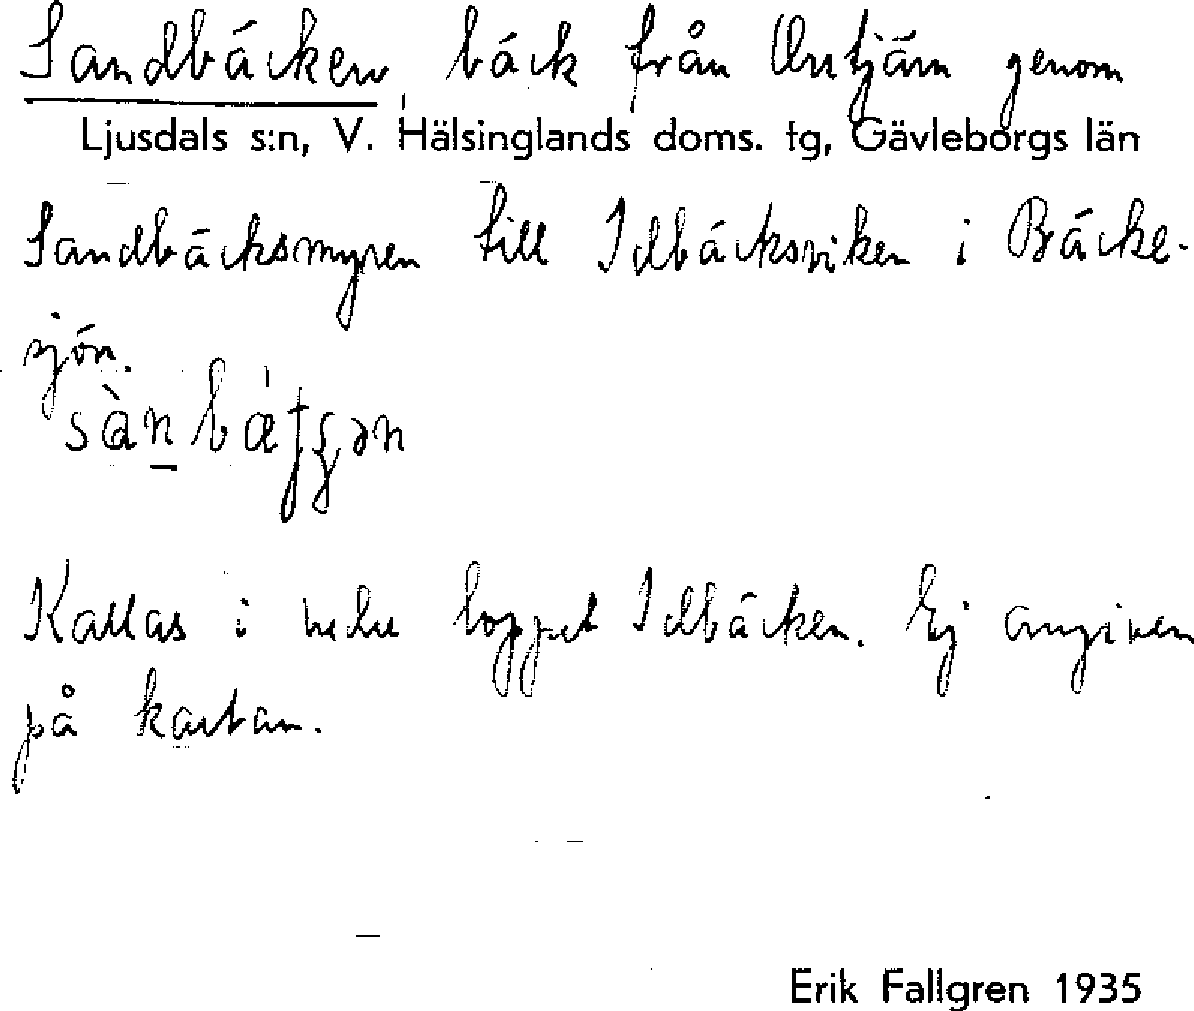 Sandbäcken, bäck från Urtjärn genom
Ljusdals s:n, V. Hälsinglands doms. tg, Gävleborgs län
Sandbäcksmyren till Idbäcksviken i Bäcke-
sjön.
Kallas i nedre loppet Idbäcken. Ej angiven
på kartan.
Erik Fallgren 1935